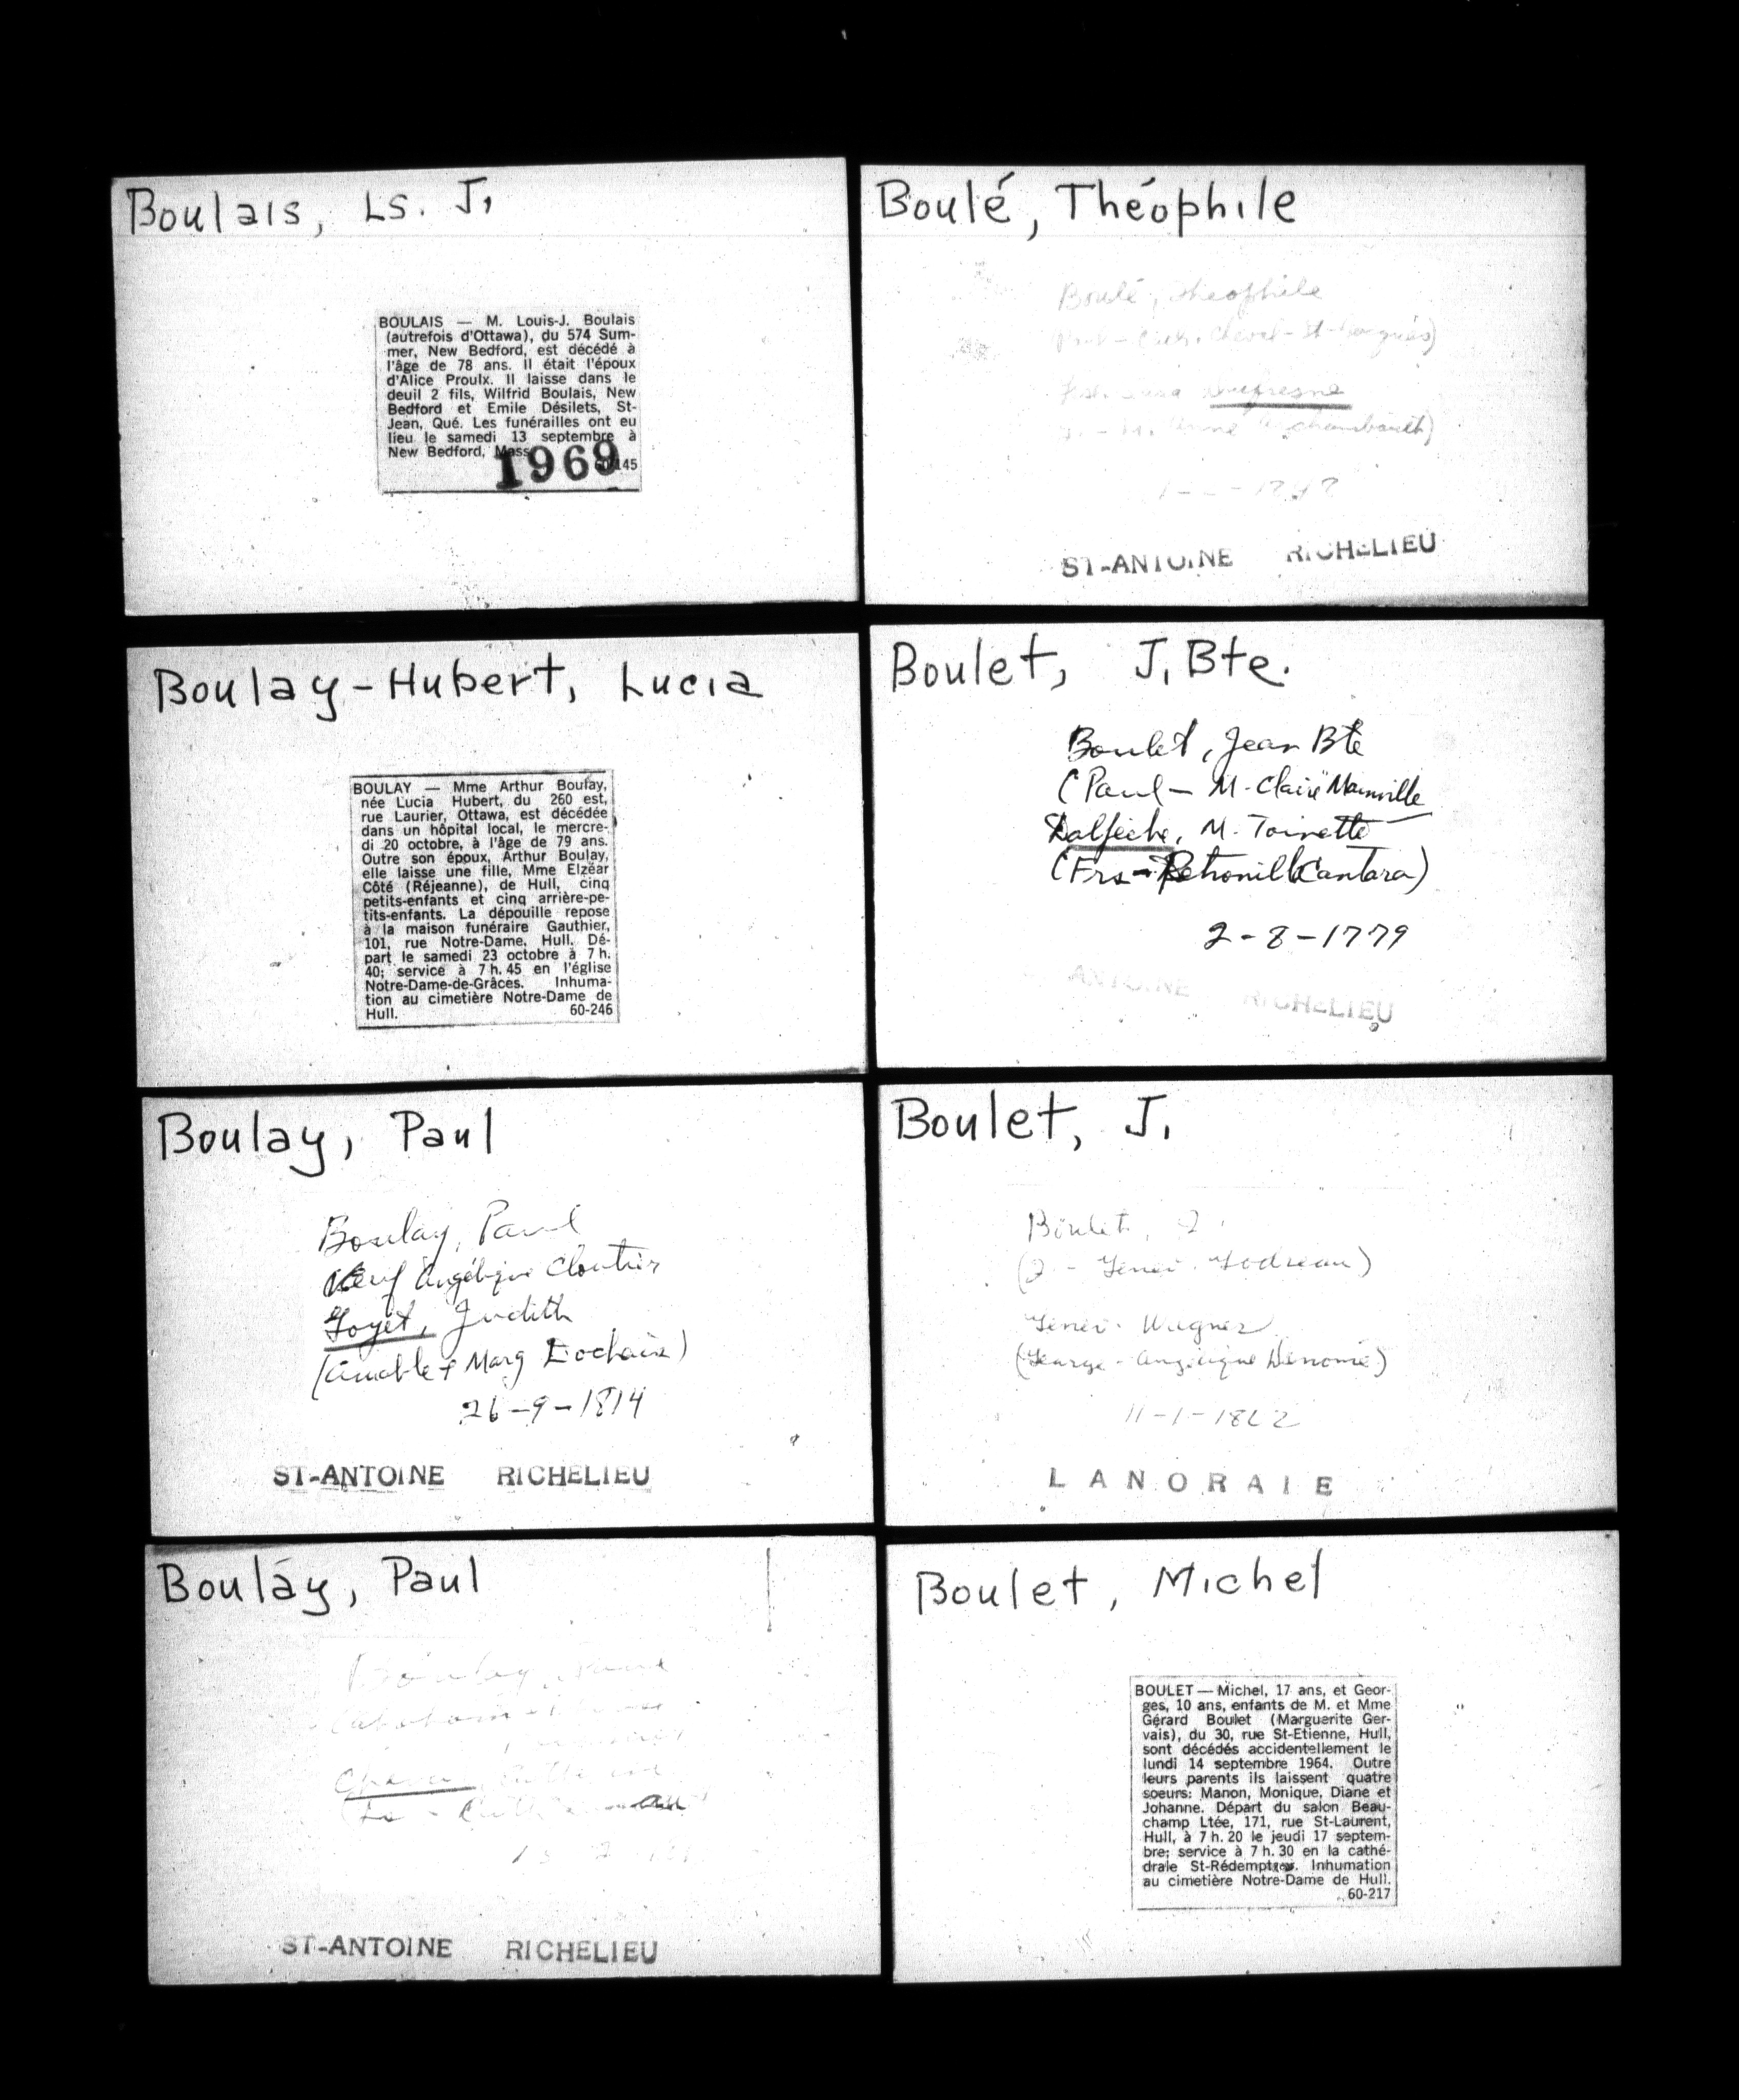 Boulais, Ls. J.
BOULAIS — M. Louis-J. Boulais
(autrefois d'Ottawa), du 574 Sum-
mer, New Bedford, est décédé à
l'âge de 78 ans. Il était l'époux
d'Alice Proulx. Il laisse dans le
deuil 2 fils, Wilfrid Boulais, New
Bedford et Emile Désilets, St-
Jean, Qué. Les funérailles ont eu
lieu le samedi 13 septembre à
New Bedford, Mass
1969
145
Boulay-Hubert, Lucia
BOULAY — Mme Arthur Boulay,
née Lucia Hubert, du 260 est,
rue Laurier, Ottawa, est décédée
dans un hôpital local, le mercre-
di 20 octobre, à l'âge de 79 ans.
Outre son époux, Arthur Boulay,
elle laisse une fille, Mme Elzéar
Côté (Réjeanne), de Hull, cinq
petits-enfants et cinq arrière-pe-
tits-enfants. La dépouille repose
à la maison funéraire Gauthier,
101, rue Notre-Dame, Hull. Dé-
part le samedi 23 octobre à 7 h.
40; service à 7 h. 45 en l'église
Notre-Dame-de-Grâces. Inhuma-
tion au cimetière Notre-Dame de
Hull. 60-246
Boulay, Paul
Boulay, Paul
Veuf Angélique Cloutier
Goyet, Judith
(Amable + Marg
26-9-1814
ST-ANTOINE RICHELIEU
Boulay, Paul
Boulay,
ST-ANTOINE RICHELIEU
Boulé, Théophile
Boulé, Théophile
Dufresne
ST-ANTOINE RICHELIEU
Boulet, J. Bte.
Boulet, Jean Bte
(Paul - M. Claire Mainville
Dalpèche, M. Toinette
(Frs - Petronille Cantara)
2-8-1779
ANTOINE RICHELIEU
Boulet, J.
Boulet, J.
(J - Genev. Godreau)
Genev. Wagner
(George - Angélique Denome)
11-1-18
LANORAIE
Boulet, Michel
BOULET — Michel, 17 ans, et Geor-
ges, 10 ans, enfants de M. et Mme
Gérard Boulet (Marguerite Ger-
vais), du 30, rue St-Etienne, Hull,
sont décédés accidentellement le
lundi 14 septembre 1964. Outre
leurs parents ils laissent quatre
soeurs: Manon, Monique, Diane et
Johanne. Départ du salon Beau-
champ Ltée, 171, rue St-Laurent,
Hull, à 7 h. 20 le jeudi 17 septem-
bre; service à 7 h. 30 en la cathé-
drale St-Rédempteur. Inhumation
au cimetière Notre-Dame de Hull.
60-217